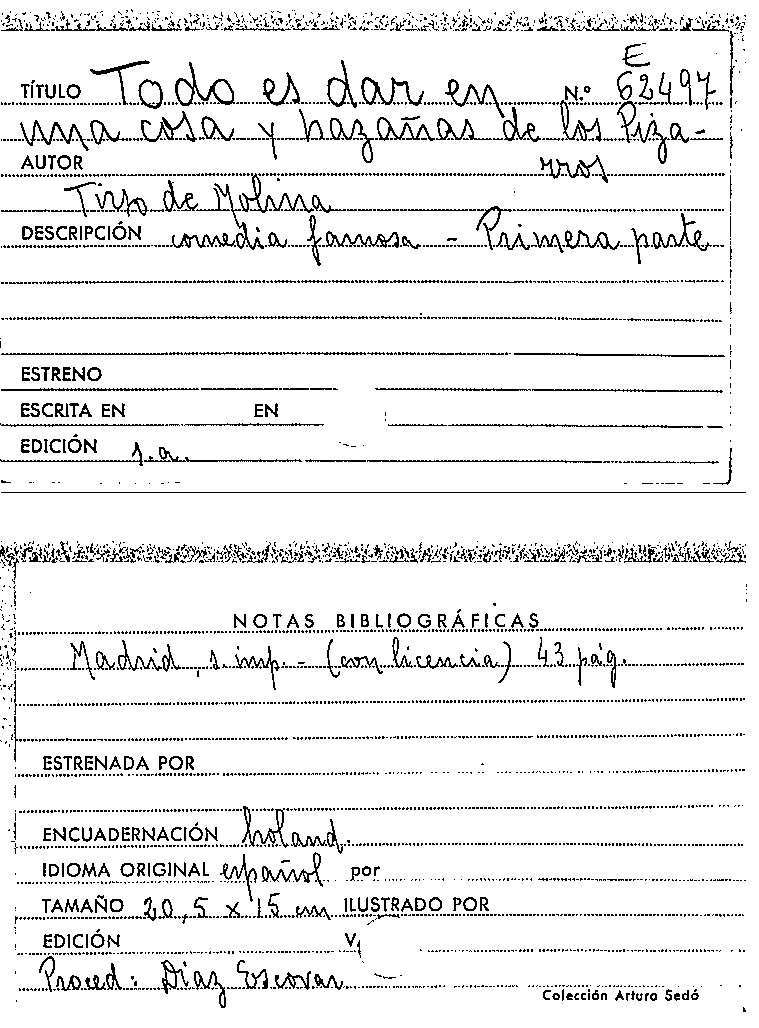 E
TÍTULO Todo es dar en N.º 62497
una cosa y hazañas de los Piza-
AUTOR rros
Tirso de Molina
DESCRIPCIÓN comedia famosa - Primera parte
ESTRENO
ESCRITA EN EN
EDICIÓN s.a.
NOTAS BIBLIOGRÁFICAS
Madrid, s. imp. - (con licencia) 43 pág.
ESTRENADA POR
ENCUADERNACIÓN holand.
IDIOMA ORIGINAL español por
TAMAÑO 20,5 x 15 cm ILUSTRADO POR
EDICIÓN
Proced: Díaz Escovar
Colección Arturo Sedó